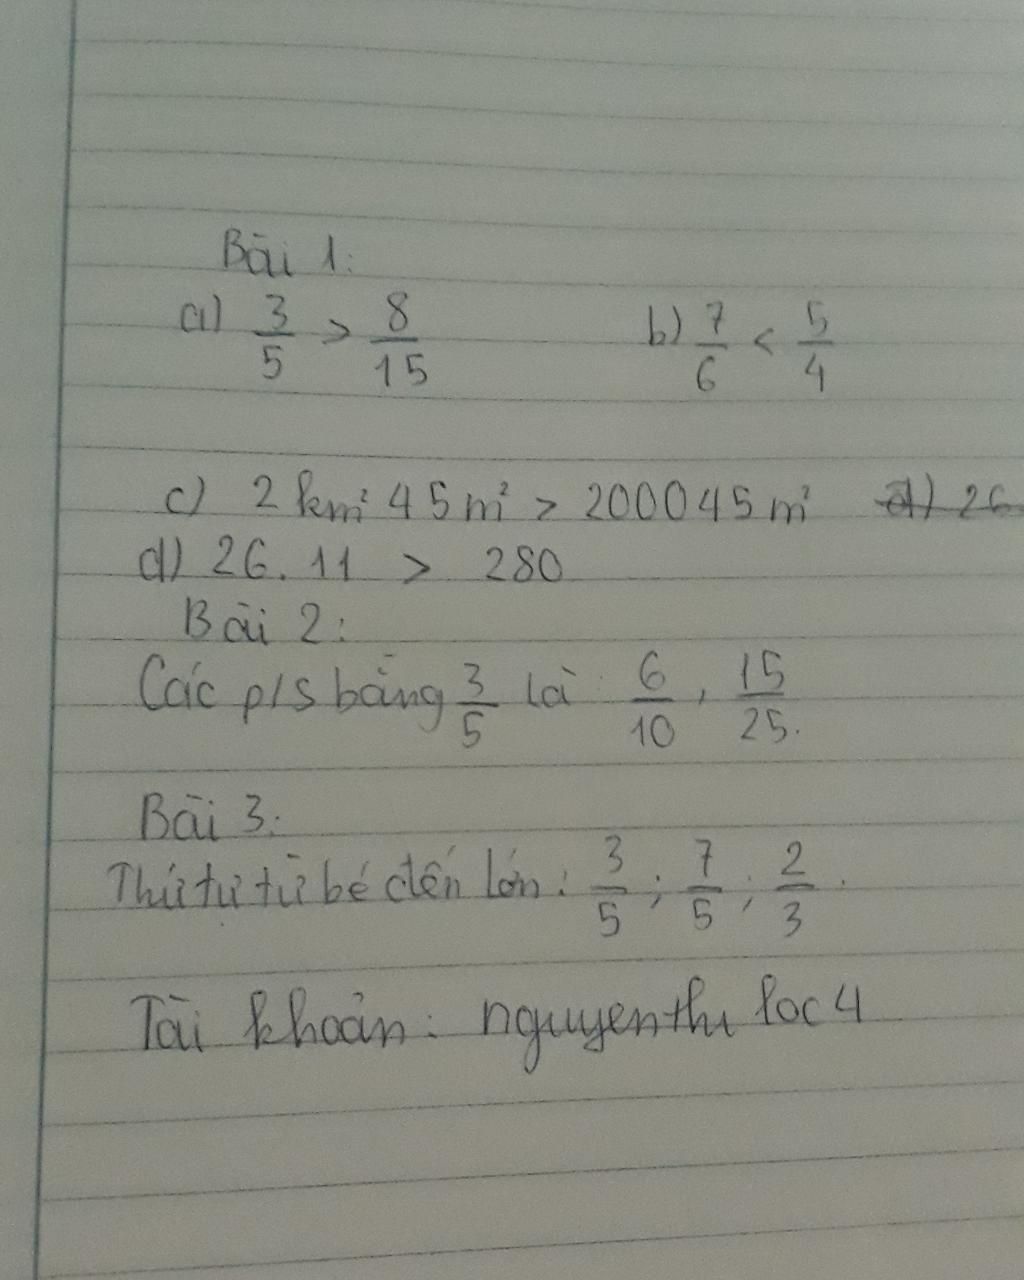 Bài 1:
a) 3/5 > 8/15 b) 7/6 < 5/4
c) 2 km² 45 m² > 200045 m² d) 26
d) 26. 11 > 280
Bài 2:
Các p/s bằng 3/5 là 6/10, 15/25.
Bài 3:
Thứ tự từ bé đến lớn: 3/5; 7/5; 2/3.
Tài khoản: nguyenthiloc4